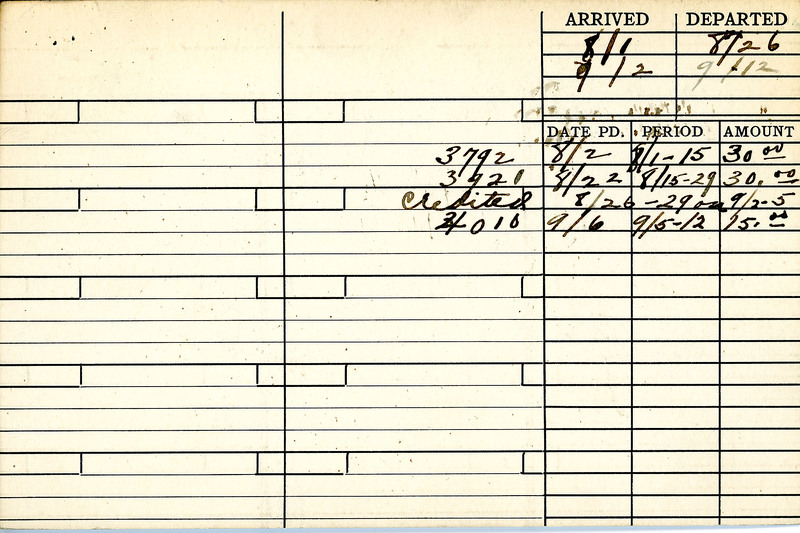 ARRIVED DEPARTED
8/1 8/26
9/2 9/12
DATE PD. PERIOD AMOUNT
3792 8/2 8/1-15 30 00
3921 8/22 8/15-29 30. 00
Credited 8/26-29 on 9/2-5
4010 9/6 9/5-12 15. 00